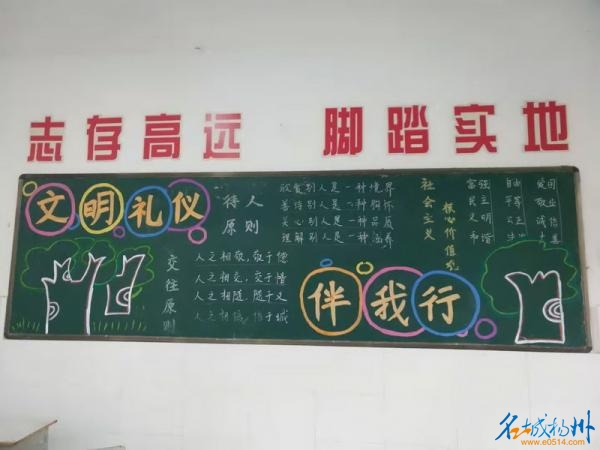 志存高远 脚踏实地
文明礼仪
待人
原则
欣赏别人是一种境界
善待别人是一种胸怀
关心别人是一种品质
理解别人是一种涵养
社会主义
核心价值观
富强民主文明和谐
自由平等公正
爱国敬业诚信友善
交往原则
人之相敬，敬于德
人之相交，交于情
人之相随，随于义
人之相信，信于诚
伴我行
名城扬州
www.e0514.com